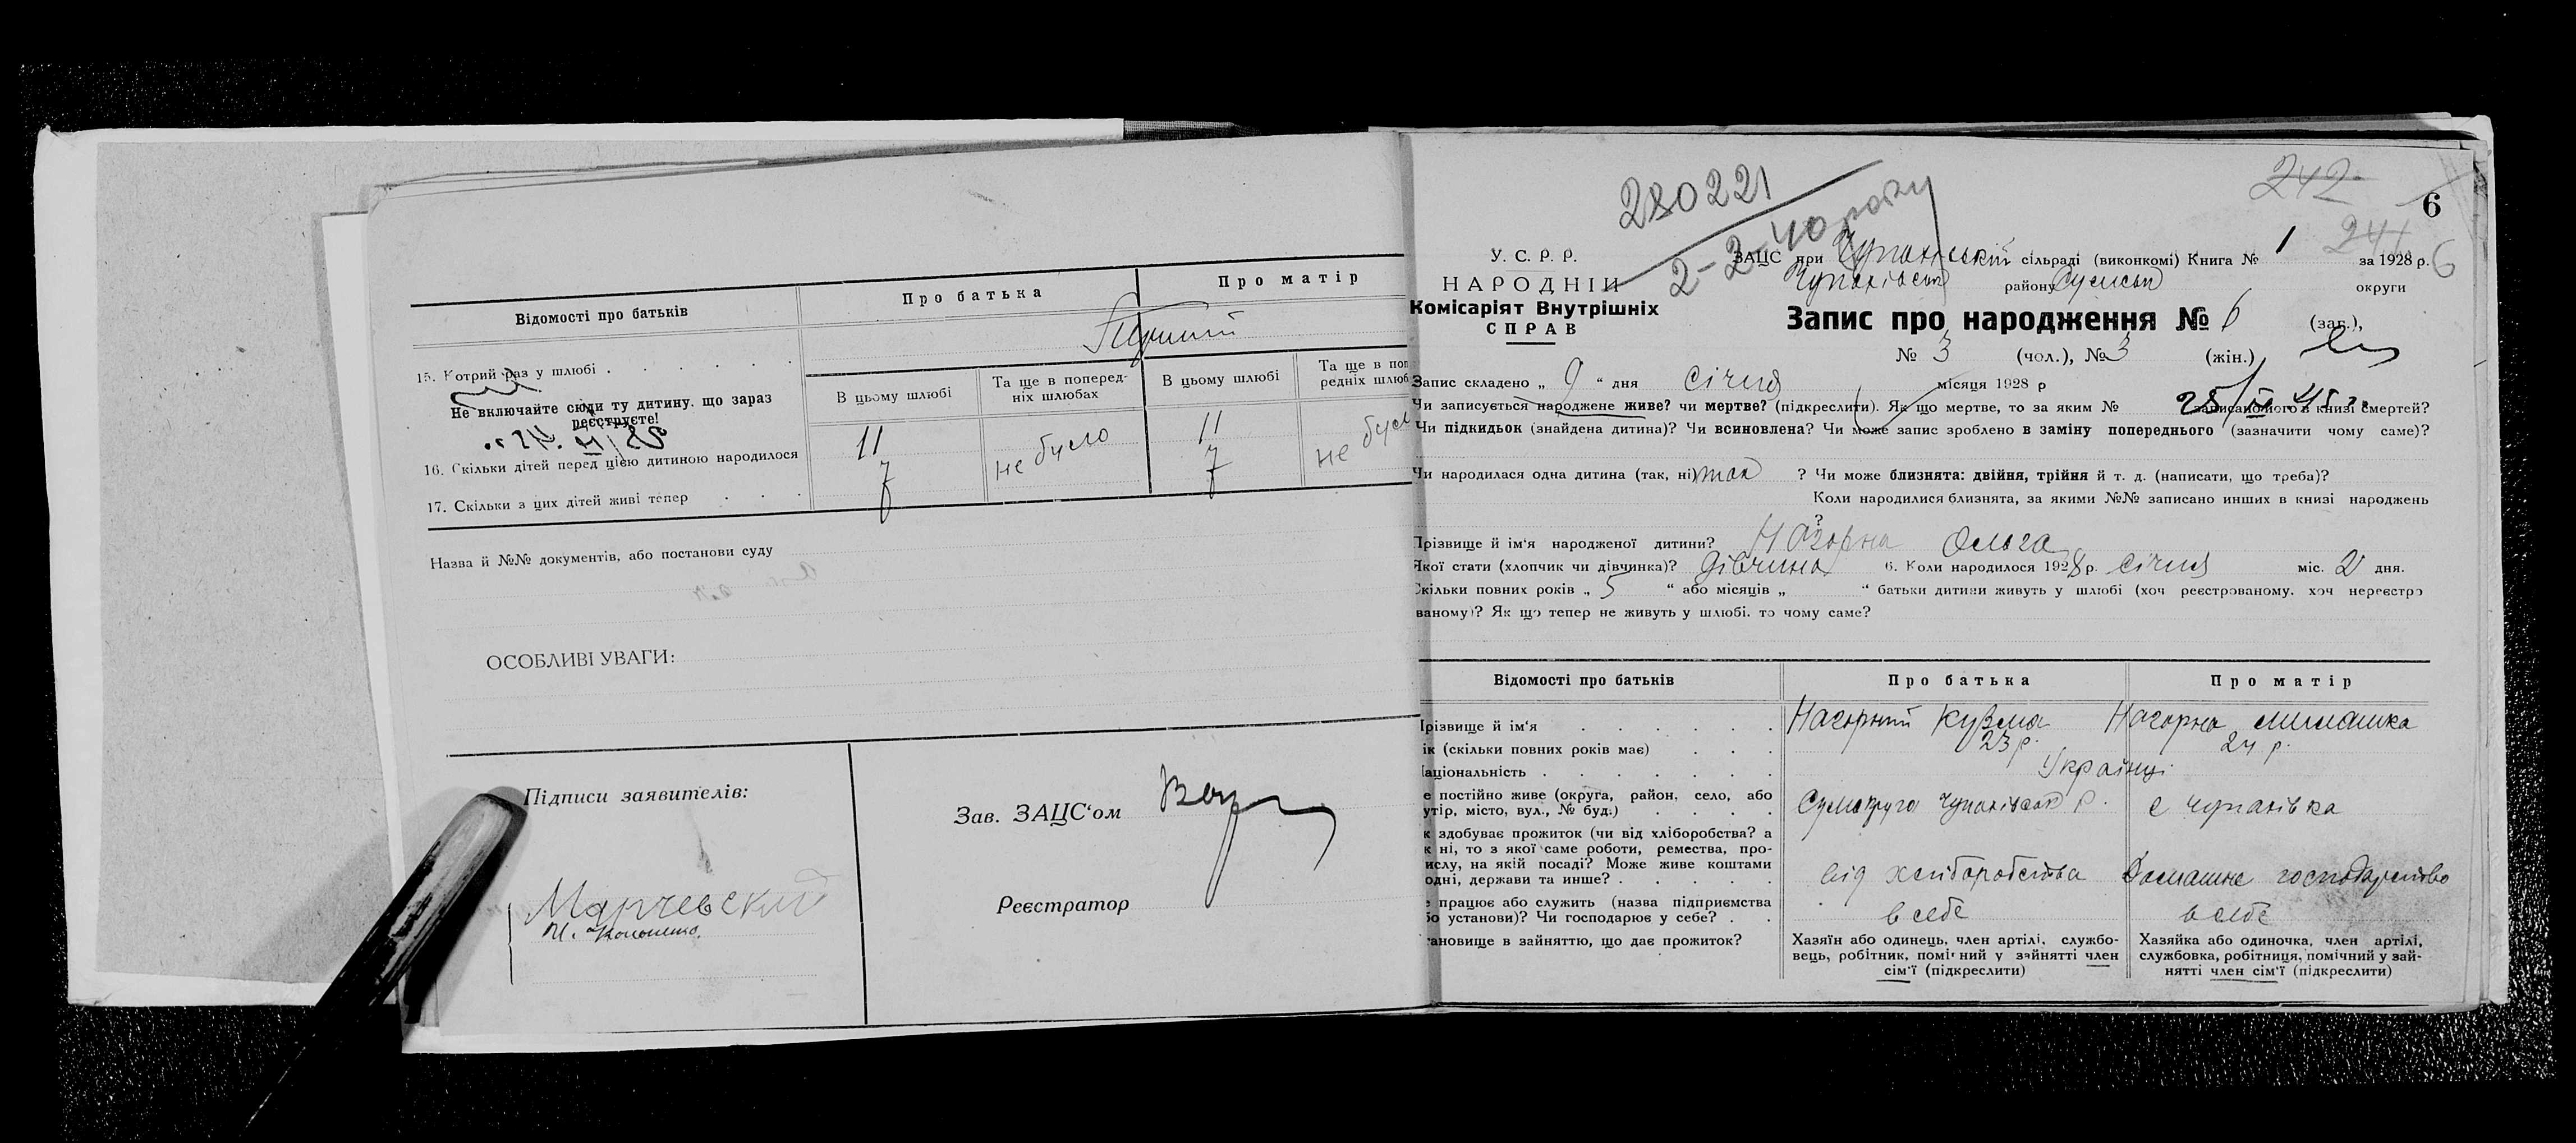 Відомості про батьків
Про батька
Про матір
15. Котрий раз у шлюбі
Перший
Не включайте сюди ту дитину, що зараз реєструєте!
В цьому шлюбі
Та ще в поперед-
ніх шлюбах
В цьому шлюбі
Та ще в поп
редніх шлюб
16. Скільки дітей перед цією дитиною народилося
11
не було
11
не було
17. Скільки з цих дітей живі тепер
7
7
Назва й №№ документів, або постанови суду
ОСОБЛИВІ УВАГИ:
Підписи заявителів:
Зав. ЗАЦС‘ом
Реєстратор
280221
2-2-40 року
242
241
6
6
У. С. Р. Р.
НАРОДНІЙ
Комісаріят Внутрішніх
СПРАВ
ЗАЦС при Чупахівській сільраді (виконкомі) Книга № 1 за 1928 р.
Чупахівськ району Сумськ округи
Запис про народження № 6 (заг.),
№ 3 (чол.), № 3 (жін.)
Запис складено „ 9 “ дня січня місяця 1928 р
Чи записується народжене живе? чи мертве? (підкреслити). Як що мертве, то за яким № записано його в книзі смертей?
Чи підкидьок (знайдена дитина)? Чи всиновлена? Чи може запис зроблено в заміну попереднього (зазначити чому саме)?
Чи народилася одна дитина (так, ні) так ? Чи може близнята: двійня, трійня й т. д. (написати, що треба)?
Коли народилися близнята, за якими №№ записано инших в книзі народжень
?
Прізвище й ім‘я народженої дитини? Нагорна Ольга
Якої стати (хлопчик чи дівчинка)? Дівчина 6. Коли народилося 1928 р. січня міс. 2 дня.
Скільки повних років „ 5 “ або місяців „ “ батьки дитини живуть у шлюбі (хоч реєстрованому, хоч нереєстро
ваному)? Як що тепер не живуть у шлюбі, то чому саме?
Відомості про батьків
Про батька
Про матір
Прізвище й ім‘я
Нагорний Кузма
Нагорна
ік (скільки повних років має)
23 р.
24 р.
Національність
Українці
е постійно живе (округа, район, село, або
утір, місто, вул., № буд.)
Сумокруга Чупахівськ р.
с Чупахівка
к здобуває прожиток (чи від хліборобства? а
к ні, то з якої саме роботи, ремества, про-
ислу, на якій посаді? Може живе коштами
одні, держави та инше?
від хліборобства
Домашне господарство
е працює або служить (назва підприємства
бо установи)? Чи господарює у себе?
в себе
в себе
тановище в зайняттю, що дає прожиток?
Хазяїн або одинець, член артілі, службо-
вець, робітник, помічний у зайнятті член
сім‘ї (підкреслити)
Хазяйка або одиночка, член артілі,
службовка, робітниця, помічний у зай-
нятті член сім‘ї (підкреслити)